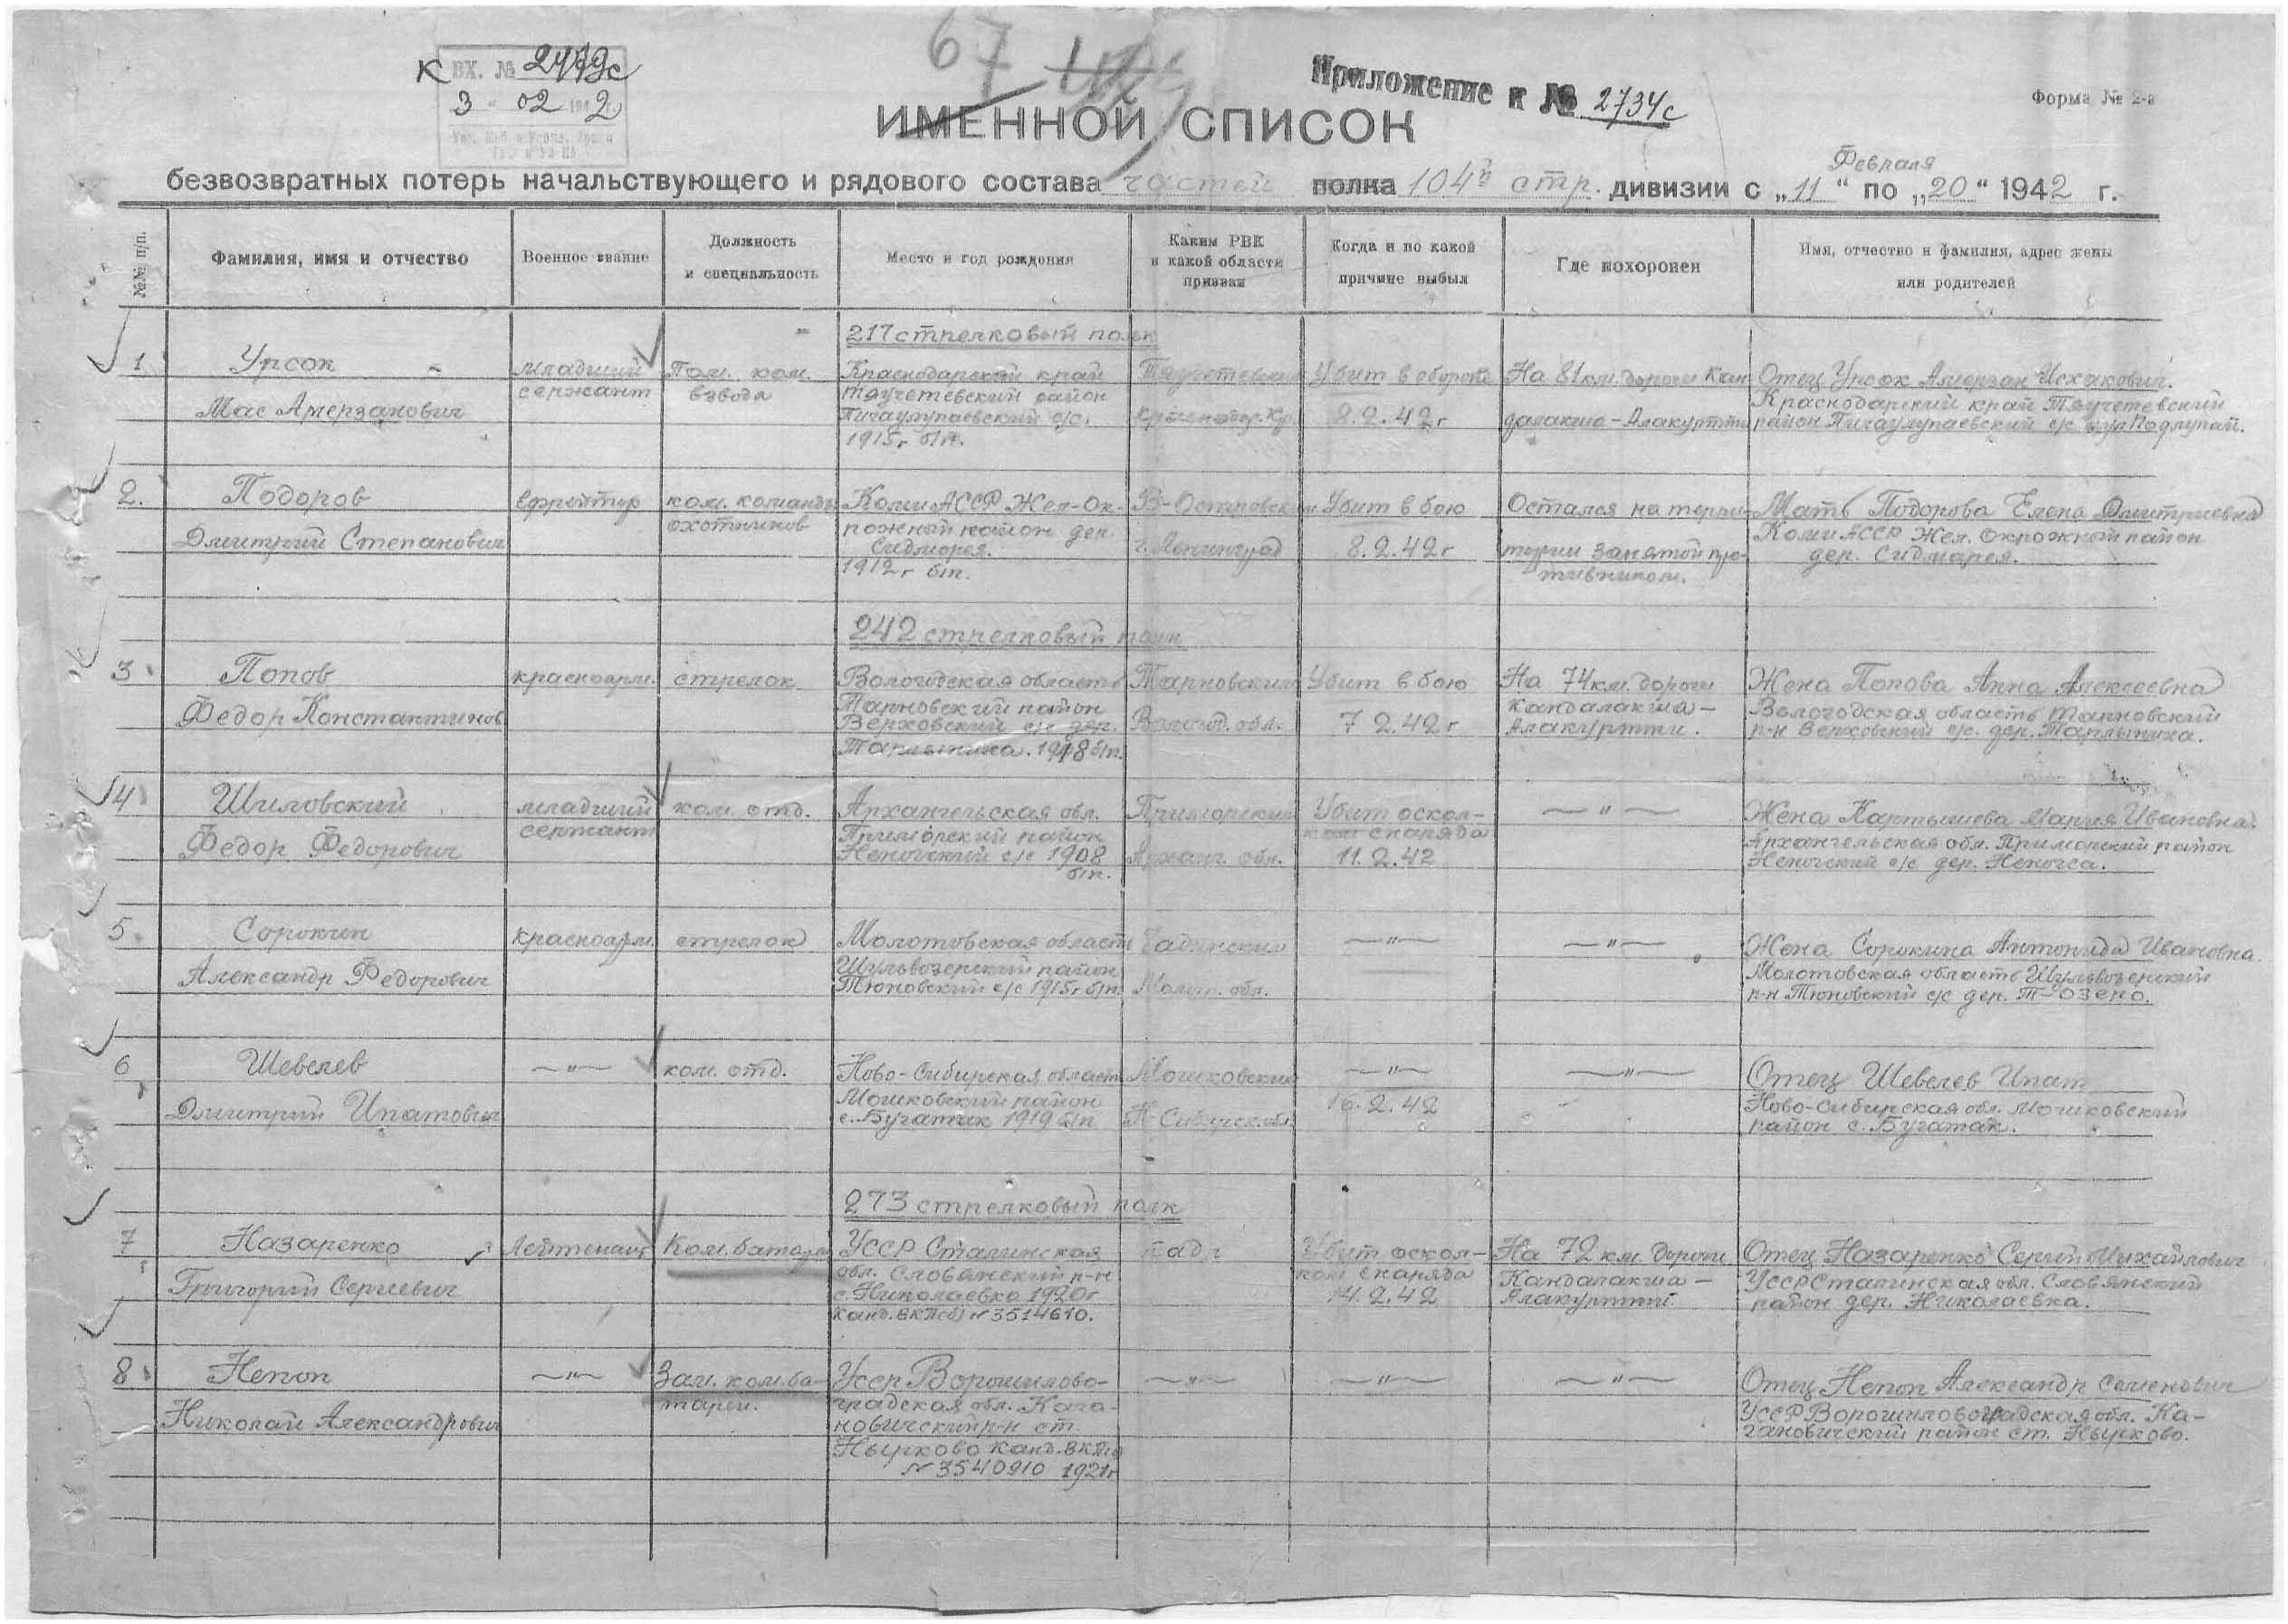 67
К ВХ. № 2479с
3 02 1942
Приложение к № 2734с
Форма № 2-а
ИМЕННОЙ СПИСОК
Февраля
безвозвратных потерь начальствующего и рядового состава частей полка 104й стр. дивизии с „11“ по „20“ 1942 г.
№№ п/п.
Фамилия, имя и отчество
Военное звание
Должность
и специальность
Место и год рождения
Каким РВК
и какой области
призван
Когда и по какой
причине выбыл
Где похоронен
Имя, отчество и фамилия, адрес жены
или родителей
217 стрелковый полк
1
Урсок
Мас Амерзанович
младший
сержант
Пом. ком.
взвода
Краснодарский край
Тяучетевский район
1915г б/п.
Тяучетевский
Краснодар. Кр.
Убит в обороне
8.2.42г
На 81 км. дороги Кан
далакша-Алакуртти
Отец Урсок Амерзан Исхакович.
Краснодарский край Тяучетевский
2.
Подоров
Дмитрий Степанович
ефрейтор
ком. команды
охотников
Коми АССР Жел-Ок-
рожный район дер.
1912г б/п.
В-Островским
г. Ленинград
Убит в бою
8.2.42г
Остался на терри-
тории занятой про-
тивником.
Мать Подорова Елена Дмитриевна
Коми АССР Жел. Окрожный район
242 стрелковый полк
3
Попов
Федор Константинов
красноарм.
стрелок
Вологодская область
Тарновский район
Верховский с/с дер.
1918 б/п.
Тарновским
Волог. обл.
Убит в бою
7 2.42г
На 74 км. дороги
Кандалакша-
Алакуртти.
Жена Попова Анна Алексеевна
Вологодская область Тарновский
р-н Верховский с/с. дер.
4
Шиловский
Федор Федорович
младший
сержант
ком. отд.
Архангельская обл.
Приморский район
Неноксский с/с 1908
б/п.
Приморским
Арханг. обл.
Убит оскол-
ком снаряда
11.2.42
—"—
Жена Картышева Мария Ивановна.
Архангельская обл. Приморский район
5
Сорокин
Александр Федорович
красноарм.
стрелок
Молотовская область
Тюновский с/с 1915г б/п.
Молот. обл.
—"—
—"—
Жена Сорокина Антонида Ивановна.
Молотовская область
р-н Тюновский с/с дер. Т-озеро.
6
Шевелев
Дмитрий Ипатович
—"—
ком. отд.
Ново-Сибирская область
Мошковский район
с. Бугатак 1919 б/п
Мошковским
Н-Сибирск. обл.
—"—
16.2.42
—"—
Отец Шевелев Ипат
Ново-Сибирская обл. Мошковский
район с. Бугатак.
273 стрелковый полк
7
Назаренко
Григорий Сергеевич
Лейтенант
Ком. батареи
УССР Сталинская
обл. Словянский р-н
с. Николаевка 1920г
Канд. ВКП(б) № 3514610.
кадр
Убит оскол-
ком снаряда
14.2.42
На 72 км. дороги
Кандалакша-
Алакуртти.
Отец Назаренко Сергей Михайлович
УССР Сталинская обл. Словянский
район дер. Николаевка.
8
Непоп
Николай Александрович
—"—
Зам. ком. ба-
тареи.
УССР Ворошилово-
градская обл. Кага-
новичский р-н ст.
Нырково Канд. ВКП(б)
№ 3540910 1921г
—"—
—"—
—"—
Отец Непоп Александр Семенович
УССР Ворошиловоградская обл. Ка-
гановичский район ст. Нырково.